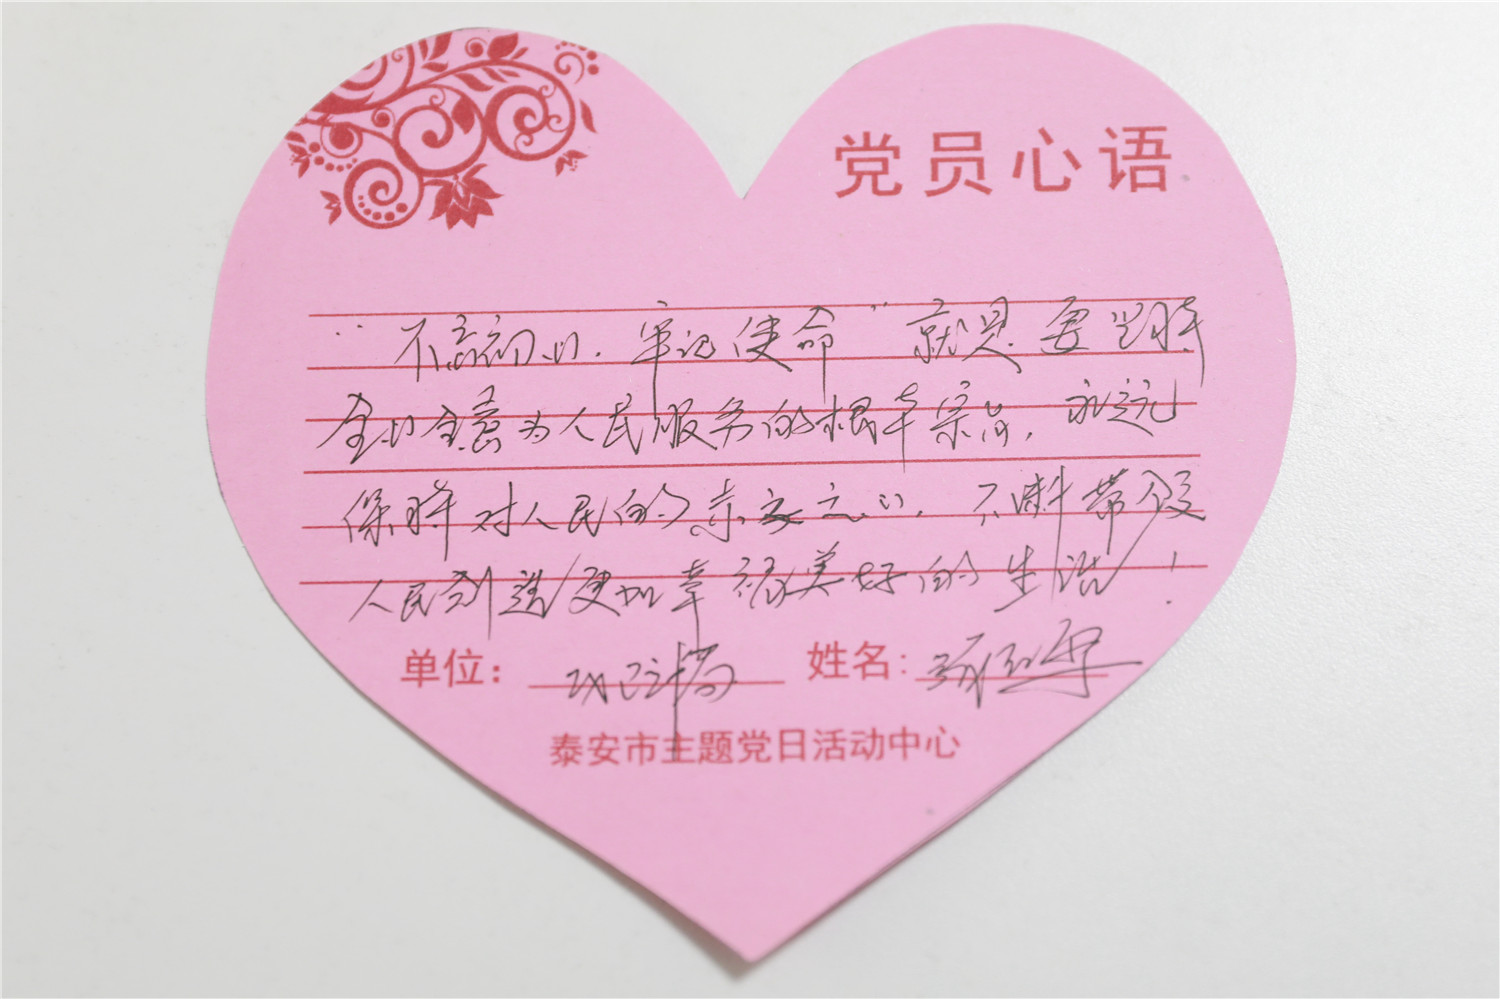 党员心语
“不忘初心、牢记使命”就是要坚持
全心全意为人民服务的根本宗旨，永远
保持对人民的赤子之心，不断带领
人民创造更加幸福美好的生活！
单位： 局 姓名：
泰安市主题党日活动中心